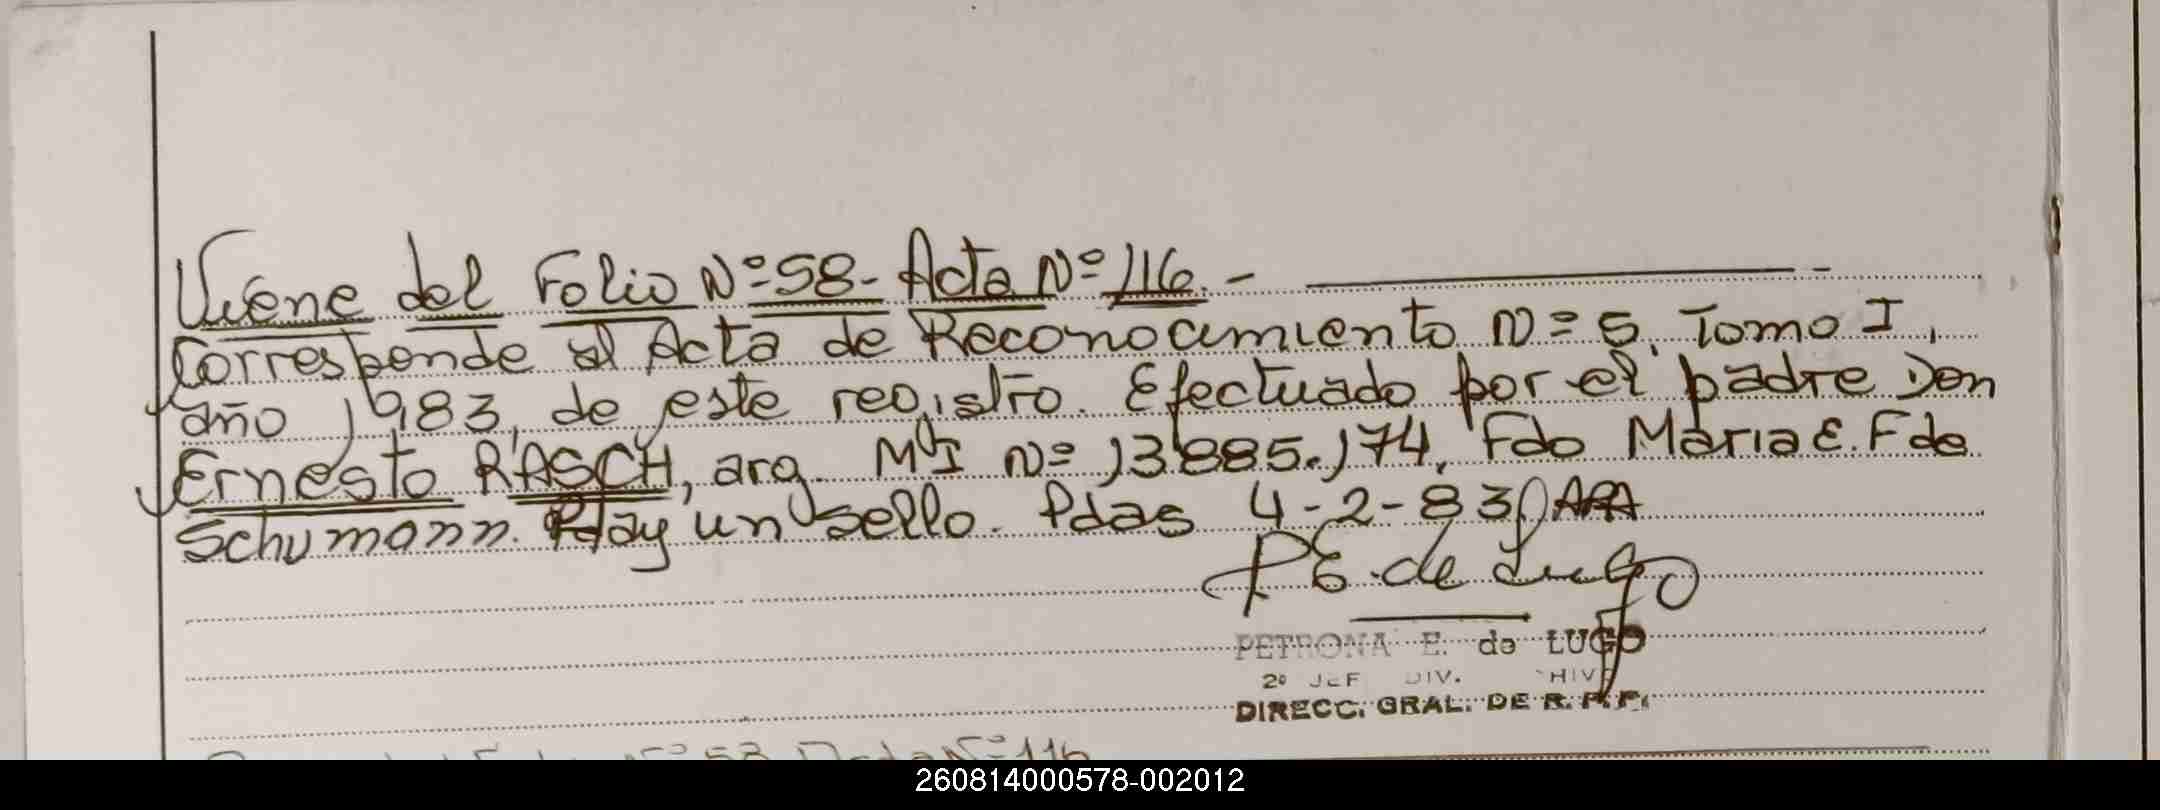 Viene del Folio Nº 58 - Acta Nº 116. -
Corresponde al Acta de Reconocimiento Nº 5, Tomo I,
año 1983, de este registro. Efectuado por el padre Don
Ernesto RASCH, arg. MI Nº 13.885.174, Fdo Maria E. F de
Schumann. Hay un sello. Pdas 4-2-83
P E. de Lugo
PETRONA E. de LUGO
2º JEF DIV. HIV
DIRECC. GRAL. DE R. P. P.
Nº 58 Acta Nº 116
260814000578-002012